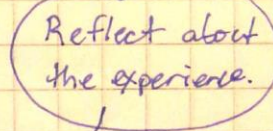 Reflect about
the experience.